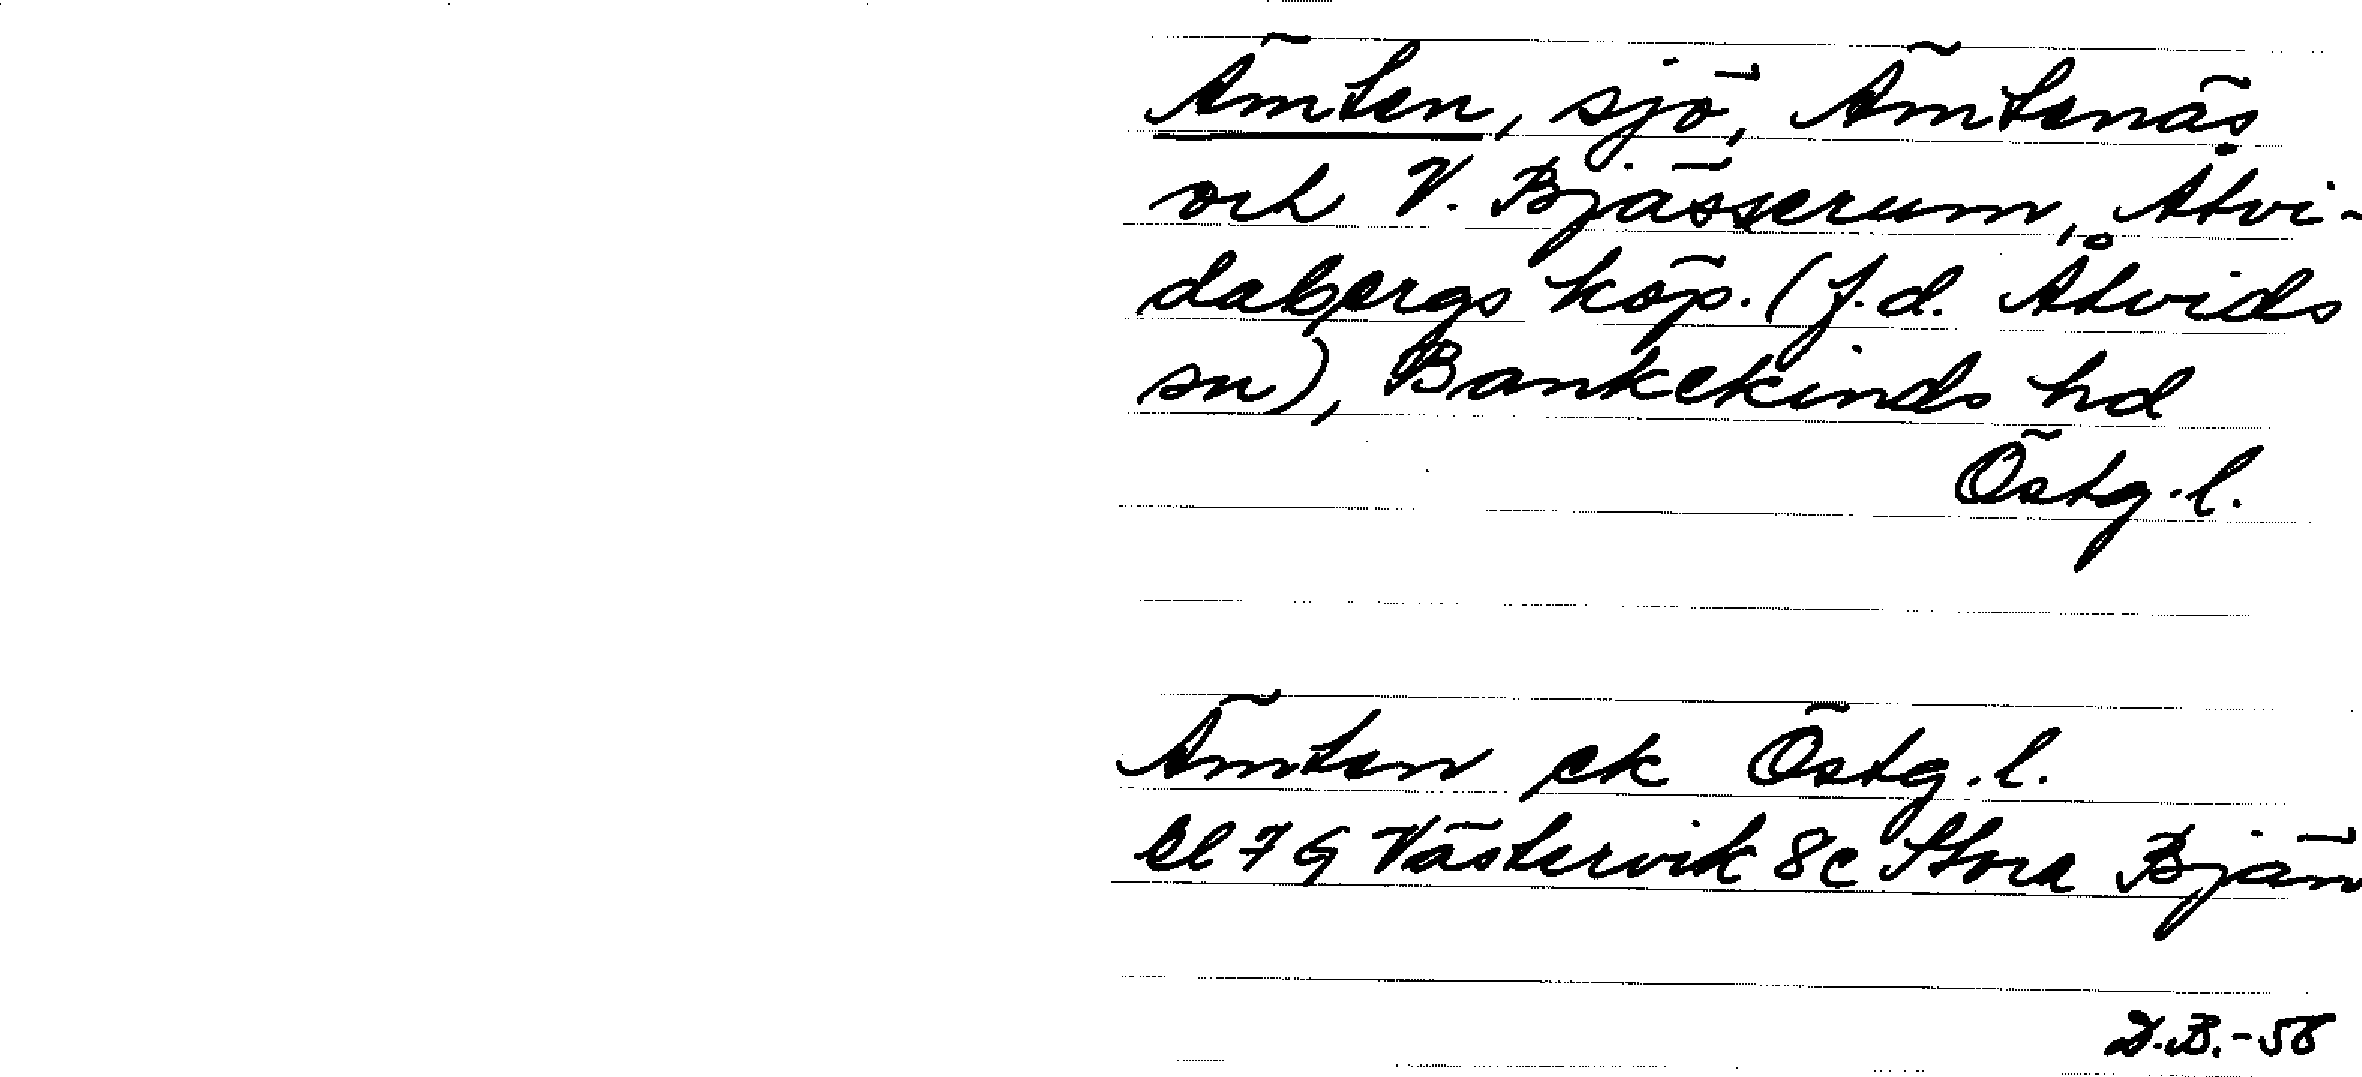 Ämten, sjö, Ämtenäs
och V. Bjässerum, Åtvi-
dabergs köp. (f.d. Åtvids
sn), Bankekinds hd
Östg.l.
Ämten ek Östg.l.
Bl 7 G Västervik 8c Stora Bjän
D.B.-58